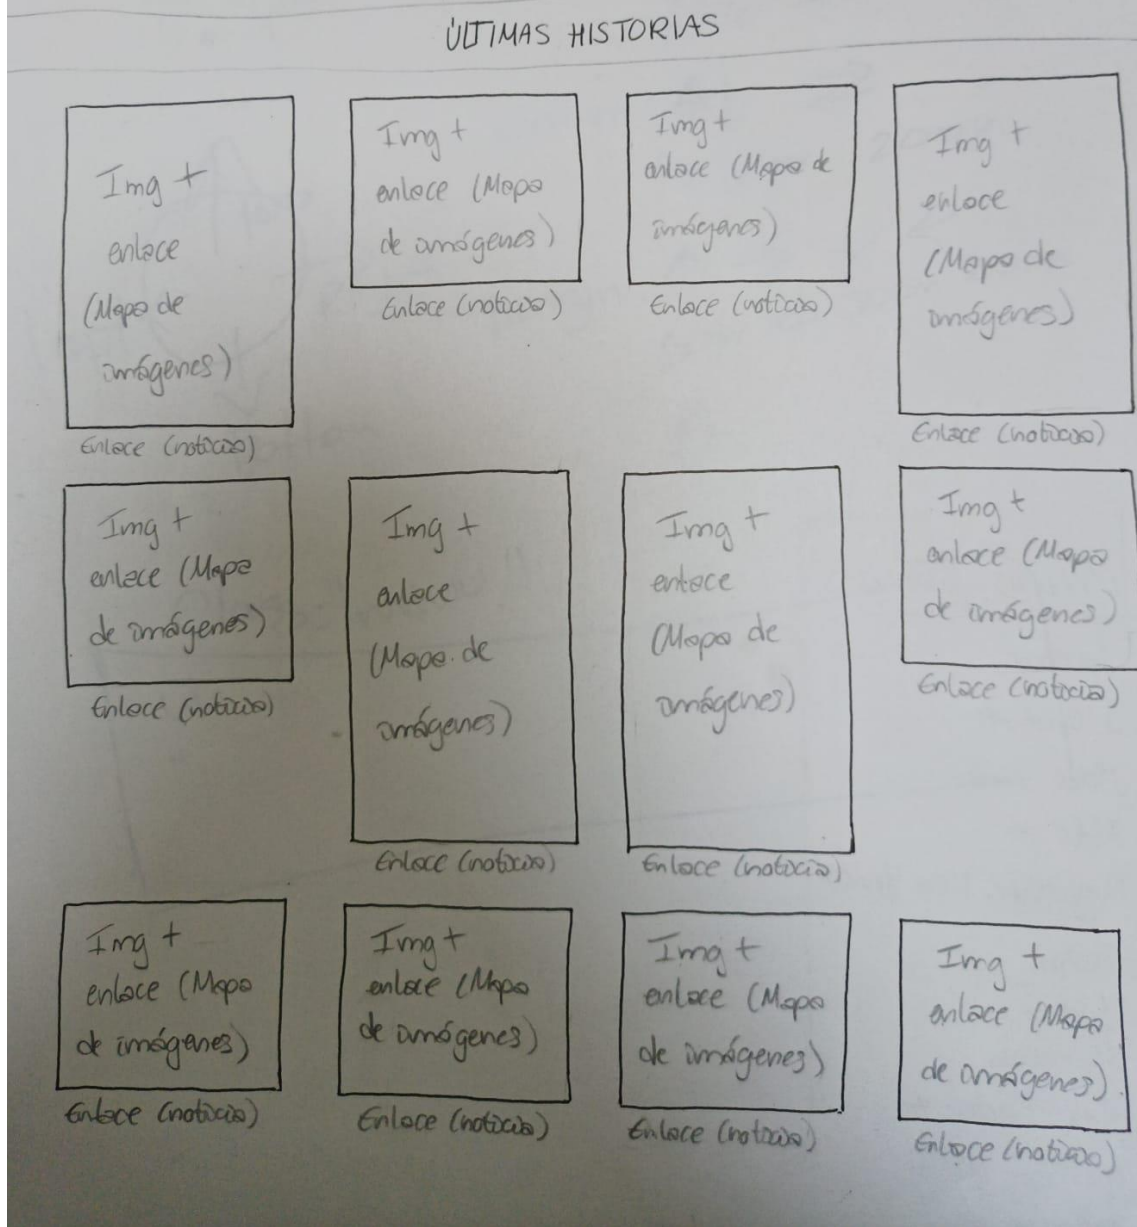 ÚLTIMAS HISTORIAS
Img +
enlace
(Mapa de
imágenes)
Enlace (noticia)
Img +
enlace (Mapa
de imágenes)
Enlace (noticia)
Img +
enlace (Mapa de
imágenes)
Enlace (noticia)
Img +
enlace
(Mapa de
imágenes)
Enlace (noticia)
Img +
enlace (Mapa
de imágenes)
Enlace (noticia)
Img +
enlace
(Mapa de
imágenes)
Enlace (noticia)
Img +
enlace
(Mapa de
imágenes)
Enlace (noticia)
Img +
enlace (Mapa
de imágenes)
Enlace (noticia)
Img +
enlace (Mapa
de imágenes)
Enlace (noticia)
Img +
enlace (Mapa
de imágenes)
Enlace (noticia)
Img +
enlace (Mapa
de imágenes)
Enlace (noticia)
Img +
enlace (Mapa
de imágenes)
Enlace (noticia)